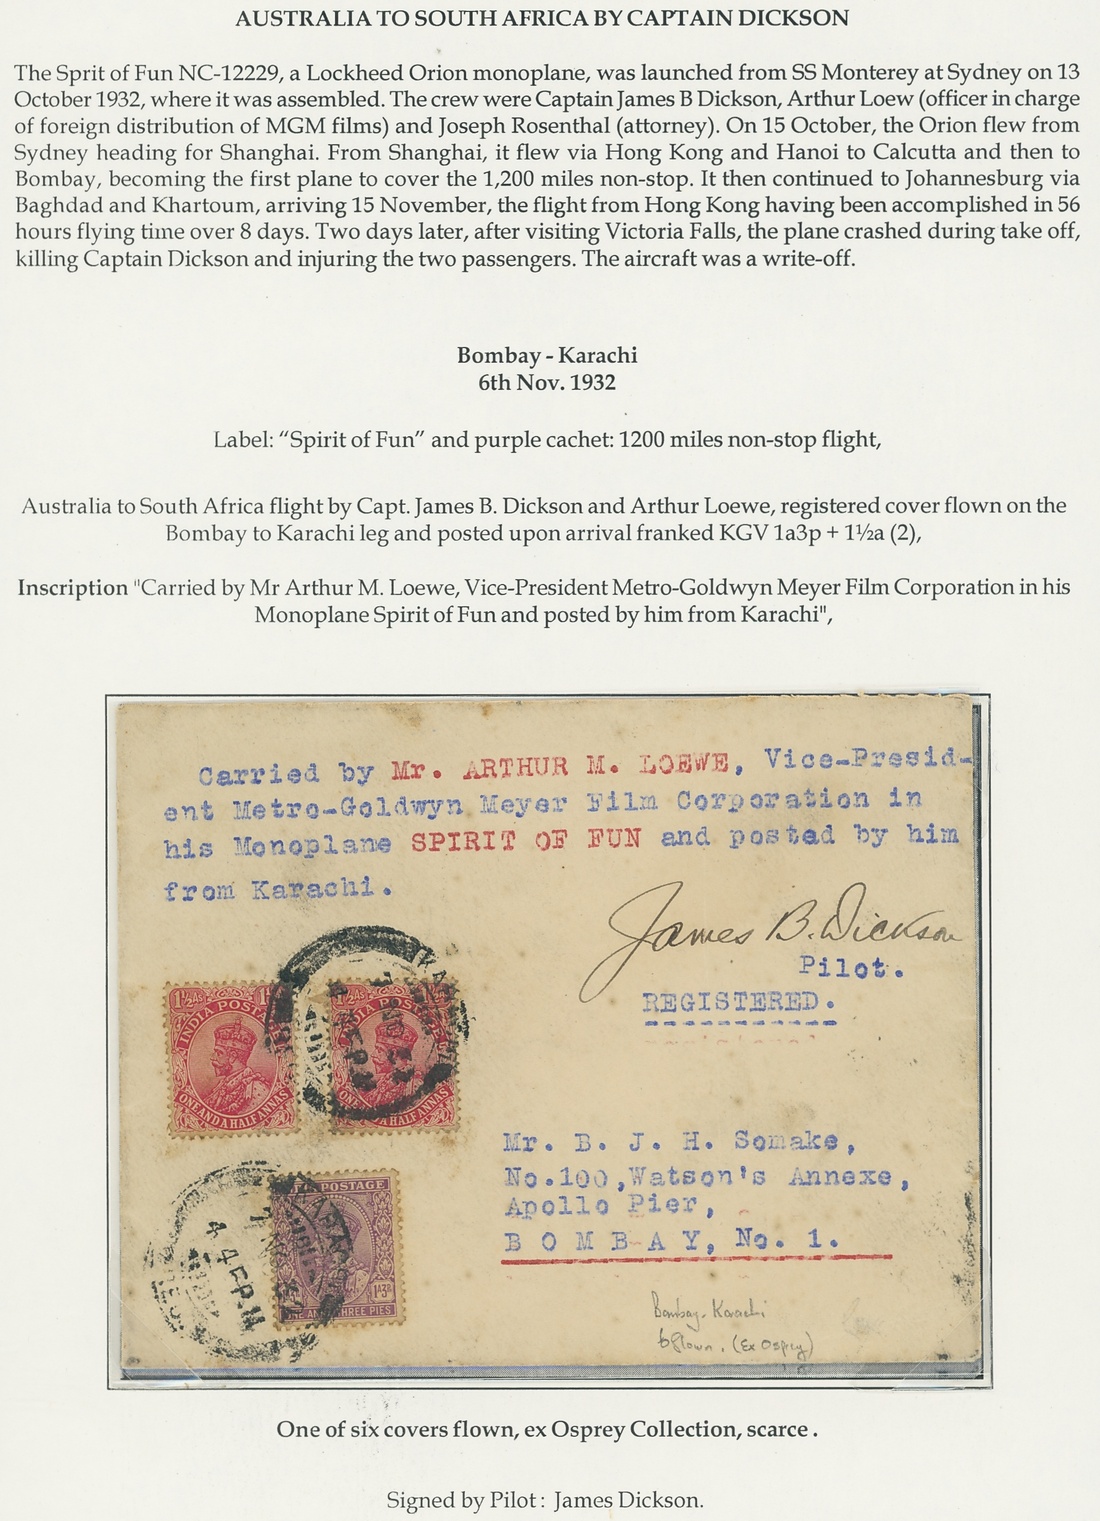 AUSTRALIA TO SOUTH AFRICA BY CAPTAIN DICKSON
The Sprit of Fun NC-12229, a Lockheed Orion monoplane, was launched from SS Monterey at Sydney on 13
October 1932, where it was assembled. The crew were Captain James B Dickson, Arthur Loew (officer in charge
of foreign distribution of MGM films) and Joseph Rosenthal (attorney). On 15 October, the Orion flew from
Sydney heading for Shanghai. From Shanghai, it flew via Hong Kong and Hanoi to Calcutta and then to
Bombay, becoming the first plane to cover the 1,200 miles non-stop. It then continued to Johannesburg via
Baghdad and Khartoum, arriving 15 November, the flight from Hong Kong having been accomplished in 56
hours flying time over 8 days. Two days later, after visiting Victoria Falls, the plane crashed during take off,
killing Captain Dickson and injuring the two passengers. The aircraft was a write-off.
Bombay - Karachi
6th Nov. 1932
Label: “Spirit of Fun” and purple cachet: 1200 miles non-stop flight,
Australia to South Africa flight by Capt. James B. Dickson and Arthur Loewe, registered cover flown on the
Bombay to Karachi leg and posted upon arrival franked KGV 1a3p + 1½a (2),
Inscription "Carried by Mr Arthur M. Loewe, Vice-President Metro-Goldwyn Meyer Film Corporation in his
Monoplane Spirit of Fun and posted by him from Karachi",
Carried by Mr. ARTHUR M. LOEWE, Vice-Presid-
ent Metro-Goldwyn Meyer Film Corporation in
his Monoplane SPIRIT OF FUN and posted by him
from Karachi.
James B. Dickson
Pilot.
REGISTERED.
1½As
INDIA POSTAGE
ONE AND A HALF ANNAS
1½As
INDIA POSTAGE
ONE AND A HALF ANNAS
Mr. B. J. H. Somake,
No.100, Watson's Annexe,
Apollo Pier,
BOMBAY, No. 1.
POSTAGE
KARACHI
4 4EP.M
1A3P
ONE ANNA THREE PIES
Bombay-Karachi
6 flown. (Ex Osprey)
One of six covers flown, ex Osprey Collection, scarce .
Signed by Pilot : James Dickson.